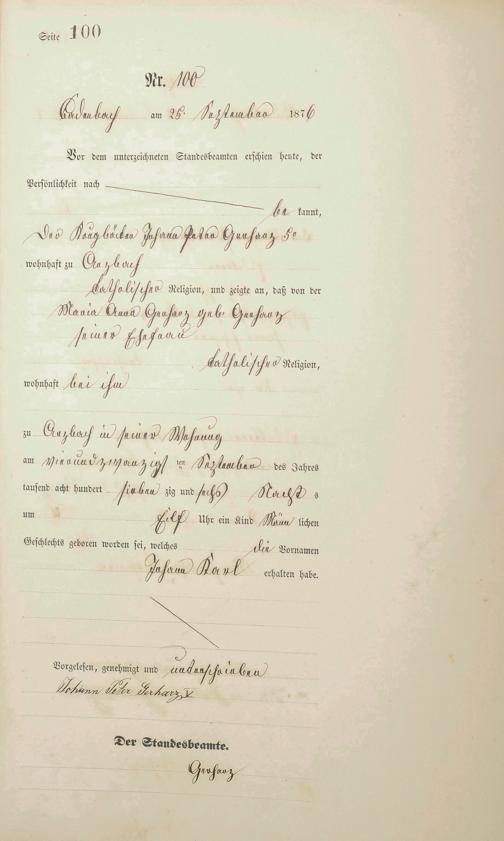 Seite 100
Nr. 100
Cadenbach am 25. September 1876
Vor dem unterzeichneten Standesbeamten erschien heute, der
Persönlichkeit nach
be kannt,
Der Krugbäcker Johann Peter Gerharz 5e
wohnhaft zu Arzbach
katholischer Religion, und zeigte an, daß von der
Maria Anna Gerharz geb. Gerharz
seiner Ehefrau
katholischer Religion,
wohnhaft bei ihm
zu Arzbach in seiner Wohnung
am vierundzwanzigst ten September des Jahres
tausend acht hundert sieben zig und sechs Nachts
um Eilf Uhr ein Kind Männ lichen
Geschlechts geboren worden sei, welches die Vornamen
Johann Karl erhalten habe.
Vorgelesen, genehmigt und unterschrieben
Johann Peter Gerharz V
Der Standesbeamte.
Gerharz